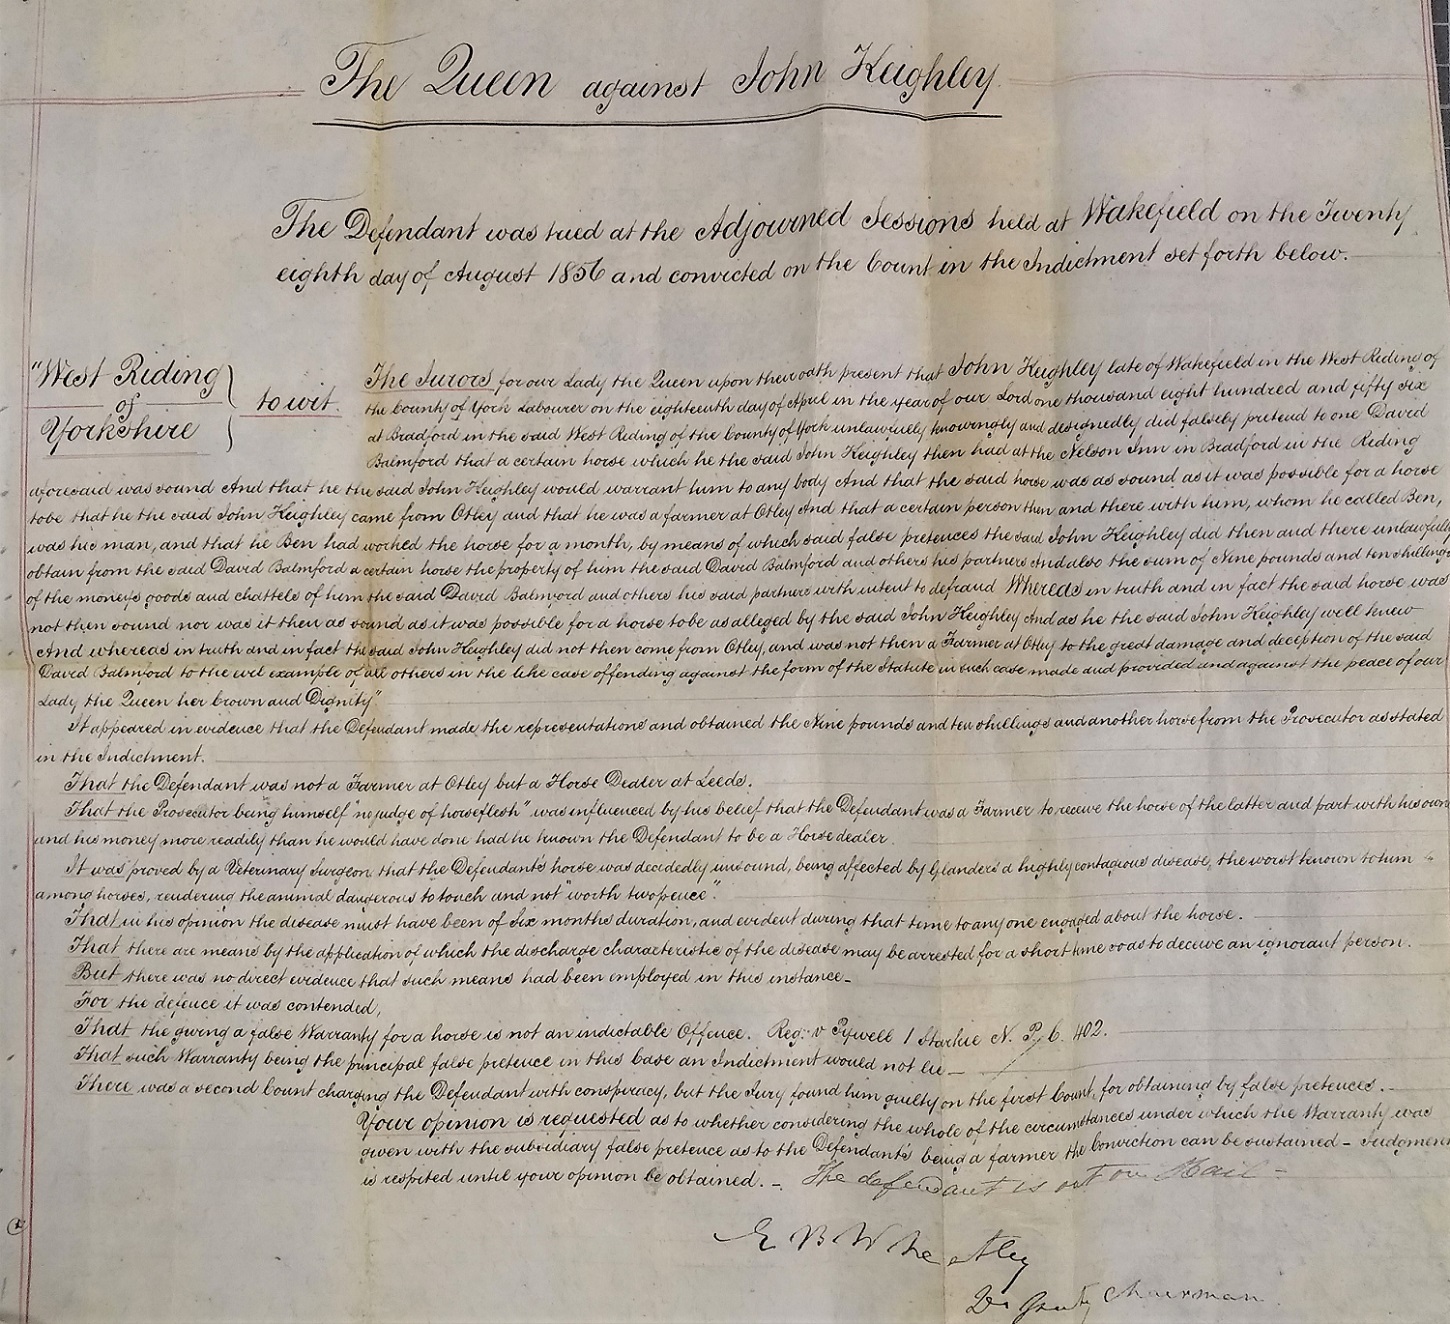 The Queen against John Keighley
The Defendant was tried at the Adjourned Sessions held at Wakefield on the Twenty
eighth day of August 1856 and convicted on the Count in the Indictment set forth below.
"West Riding
of
Yorkshire
to wit.
The Jurors for our Lady the Queen upon their oath present that John Keighley late of Wakefield in the West Riding of
the County of York Labourer on the eighteenth day of April in the year of our Lord one thousand eight hundred and fifty six
at Bradford in the said West Riding of the County of York unlawfully knowingly and designedly did falsely pretend to one David
Balmford that a certain horse which he the said John Keighley then had at the Nelson Inn in Bradford in the Riding
aforesaid was sound And that he the said John Keighley would warrant him to any body And that the said horse was as sound as it was possible for a horse
to be that he the said John Keighley came from Otley and that he was a farmer at Otley And that a certain person then and there with him, whom he called Ben,
was his man, and that he Ben had worked the horse for a month, by means of which said false pretences the said John Keighley did then and there unlawfully
obtain from the said David Balmford a certain horse the property of him the said David Balmford and others his partners And also the sum of Nine pounds and ten shillings
of the moneys goods and chattels of him the said David Balmford and others his said partners with intent to defraud Whereas in truth and in fact the said horse was
not then sound nor was it then as sound as it was possible for a horse to be as alleged by the said John Keighley And as he the said John Keighley well knew
And whereas in truth and in fact the said John Keighley did not then come from Otley, and was not then a Farmer at Otley to the great damage and deception of the said
David Balmford to the evil example of all others in the like case offending against the form of the Statute in such case made and provided and against the peace of our
Lady the Queen her Crown and Dignity"
It appeared in evidence that the Defendant made the representations and obtained the Nine pounds and ten shillings and another horse from the Prosecutor as stated
in the Indictment.
That the Defendant was not a Farmer at Otley but a Horse Dealer at Leeds.
That the Prosecutor being himself "no judge of horseflesh" was influenced by his belief that the Defendant was a Farmer to receive the horse of the latter and part with his own
and his money more readily than he would have done had he known the Defendant to be a Horse dealer.
It was proved by a Veterinary Surgeon that the Defendant's horse was decidedly unsound, being affected by Glanders a highly contagious disease, the worst known to him
among horses, rendering the animal dangerous to touch and not "worth twopence".
That in his opinion the disease must have been of Six months duration, and evident during that time to any one engaged about the horse.
That there are means by the application of which the discharge characteristic of the disease may be arrested for a short time so as to deceive an ignorant person.
But there was no direct evidence that such means had been employed in this instance_
For the defence it was contended,
That the giving a false Warranty for a horse is not an indictable Offence. Reg: v Pywell 1 Starkie N. P. C. 402.
That such Warranty being the principal false pretence in this Case an Indictment would not lie_
There was a second Count charging the Defendant with conspiracy, but the Jury found him guilty on the first Count, for obtaining by false pretences._
Your opinion is requested as to whether considering the whole of the circumstances under which the Warranty was
given with the subsidiary false pretence as to the Defendant's being a farmer the Conviction can be sustained - Judgment
is respited until your opinion be obtained. - The defendant is out on Bail -
E B Wheatley
Deputy Chairman